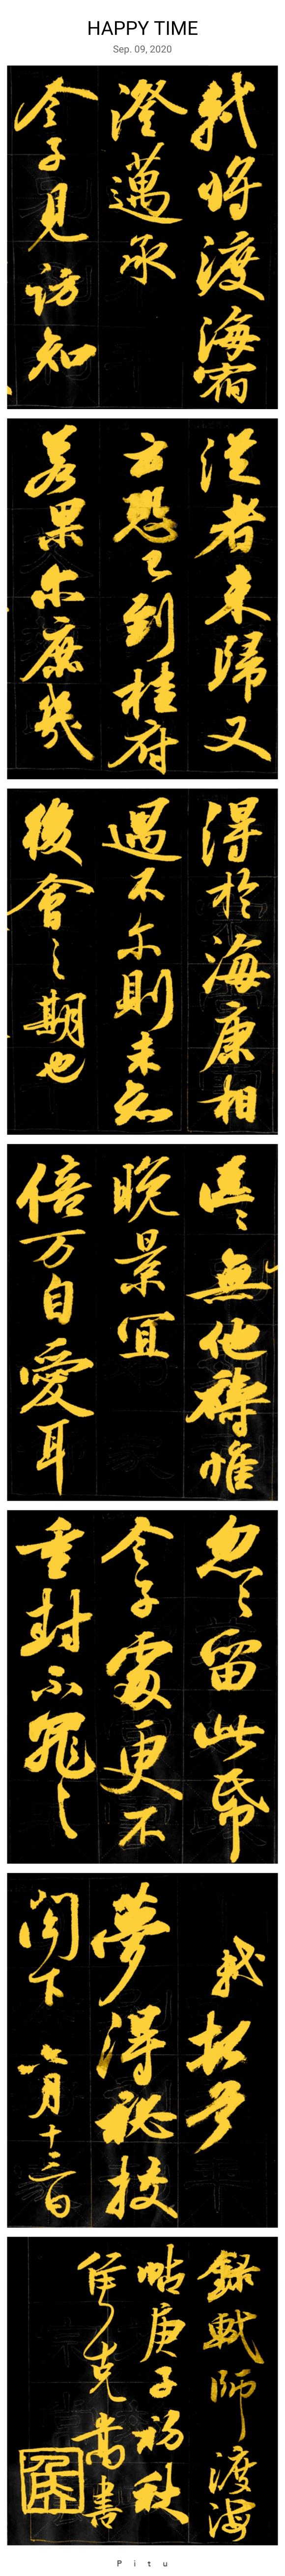 HAPPY TIME
Sep. 09, 2020
軾将渡海宿
澄邁承
令子見訪知
從者未歸又
云恐已到桂府
若果尔庶幾
得於海康相
遇不尔則未知
後會〻期也
區〻無他祷惟
晚景宜
倍万自愛耳
忽〻留此帋
令子處更不
重封不罪〻
軾頓首
夢得秘校
閣下 六月十三日
録軾師渡海
帖庚子初秋
克書
Pitu